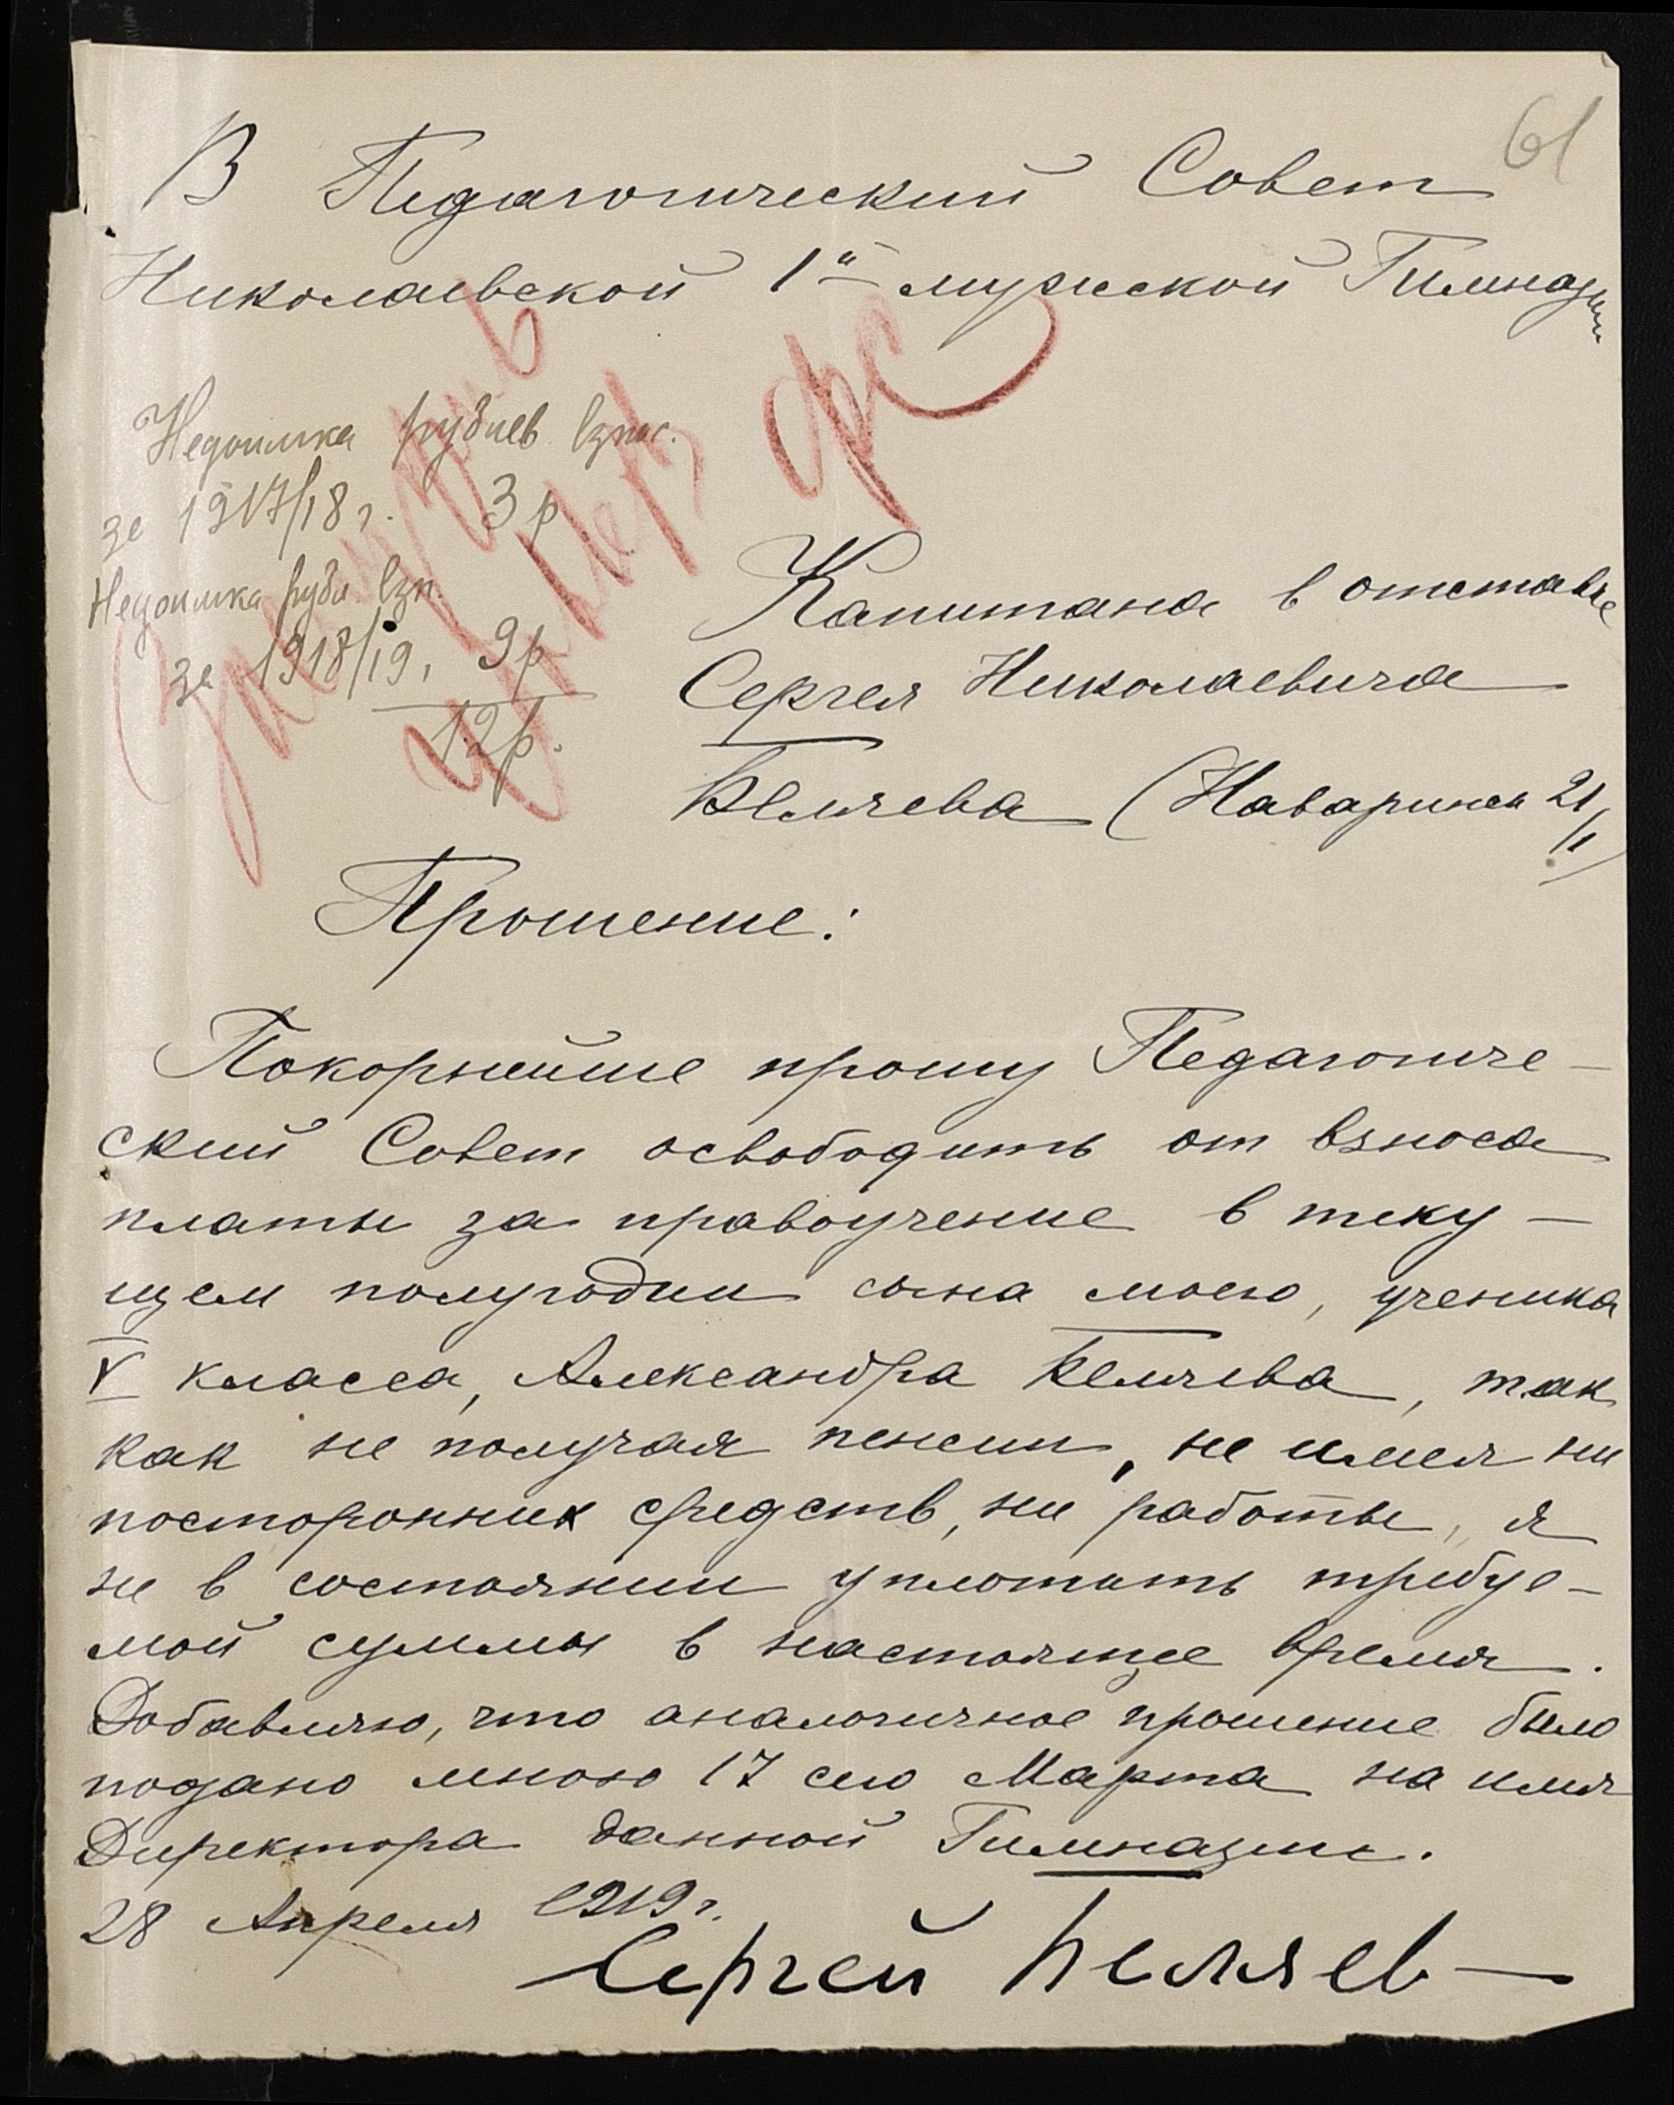 61
В Педагогический Совет
Николаевской 1й мужской Гимназии
Недоимка рублев. взнос.
за 1917/18 г. 3 р
Недоимка рубл. взн.
за 1918/19, 9 р
12 р.
Капитана в отставке
Сергея Николаевича
Беляева (Наваринск 21/1)
Прошение:
Покорнейше прошу Педагогиче-
ский Совет освободить от взноса
платы за правоучение в теку-
щем полугодии сына моего, ученика
V класса, Александра Беляева, так
как не получая пенсии, не имея ни
посторонних средств, ни работы, я
не в состоянии уплотить требуе-
мой суммы в настоящее время.
Добавляю, что аналогичное прошение было
подано мною 17 сего Марта на имя
Директора данной Гимназии.
28 Апреля 1919 г.
Сергей Беляев